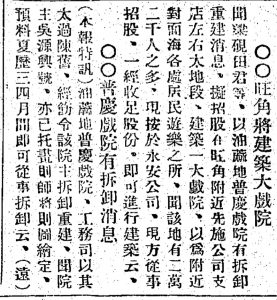 ○○旺角將建築大戲院
聞梁硯田君等、以油蔴地普慶戲院有拆卸
重建消息、擬招股在旺角附近先施公司支
店左右大地段、建築一大戲院、以爲附近
對面海各處居民遊樂之所、聞該地有二萬
二千人之多、現按於永安公司、現方從事
招股、一經收足股份、即可進行建築云、
○○普慶戲院有拆卸消息
(本報特訊)油蔴地普慶戲院、工務司以其
太過陳舊、經飭令該院主拆卸重建、聞院
主吳源興號、亦已托畫則師將則圖繪定、
預料夏歷三四月間即可從事拆卸云、(遠)